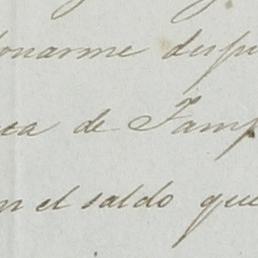 onarme desp
de Tamp
n el saldo que